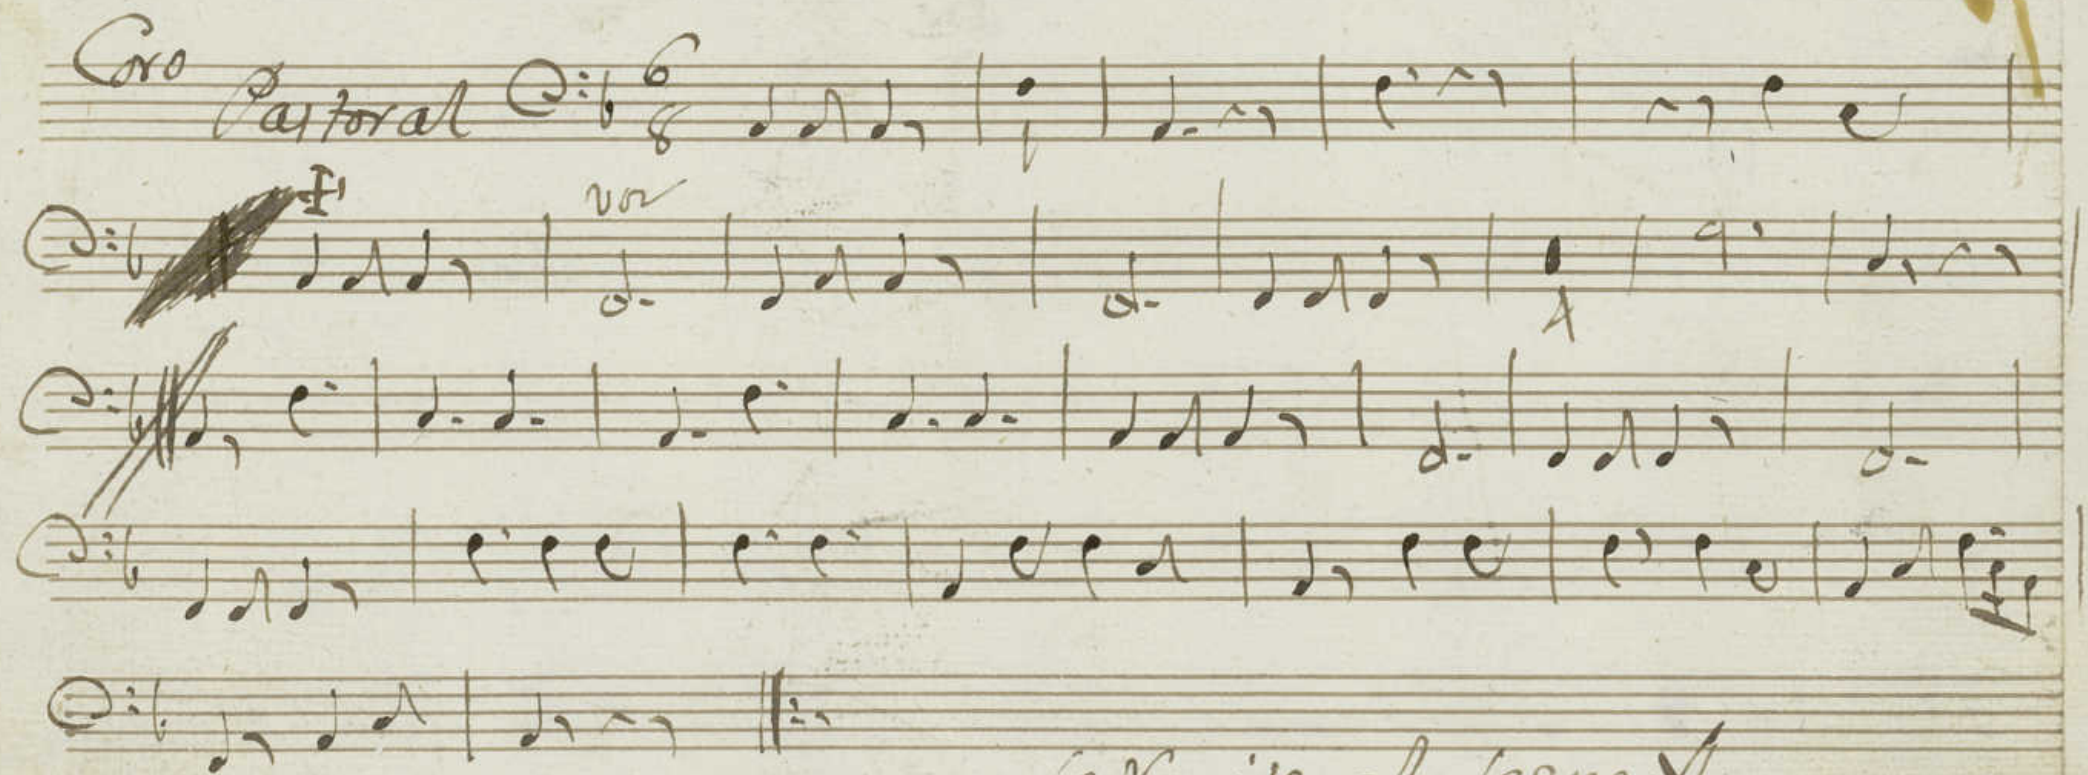 Coro
Pastoral 6
8
F
voz
A